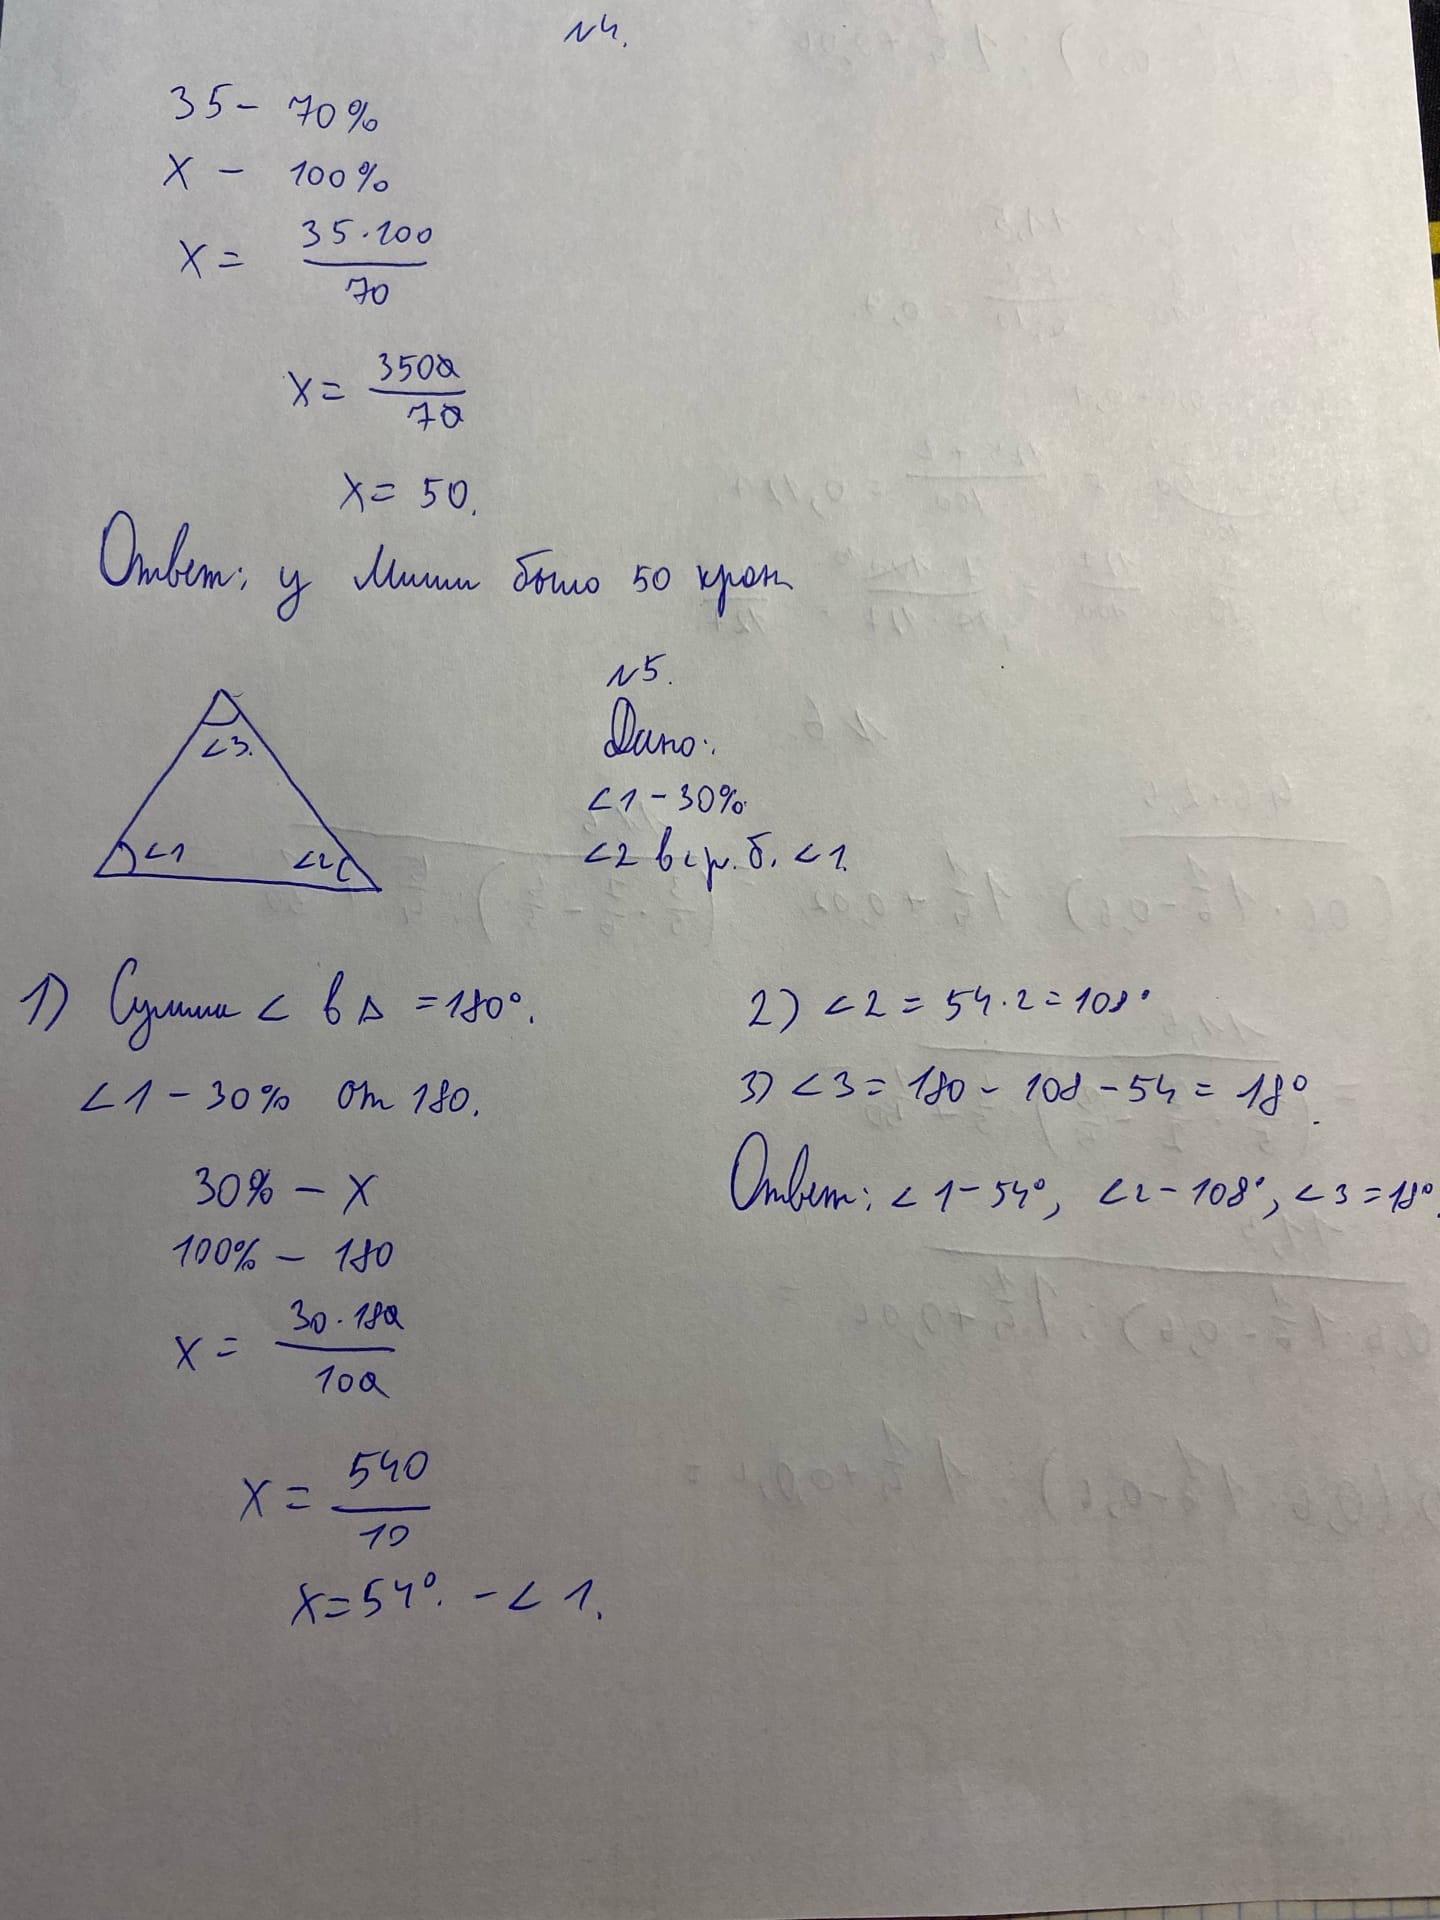 №4.
35 - 70%
x - 100%
x = 35·100/70
x = 3500/70
x = 50.
Ответ: у Миши было 50 крон
№5.
∠3.
∠1 ∠2
Дано:
∠1 - 30%
∠2 в р. б. ∠1.
1) Сумма ∠ в Δ = 180°.
∠1 - 30% от 180.
30% - x
100% - 180
x = 30·180/100
x = 540/10
x = 54°. - ∠1.
2) ∠2 = 54·2 = 108°
3) ∠3 = 180 - 108 - 54 = 18°.
Ответ: ∠1 - 54°, ∠2 - 108°, ∠3 = 18°.